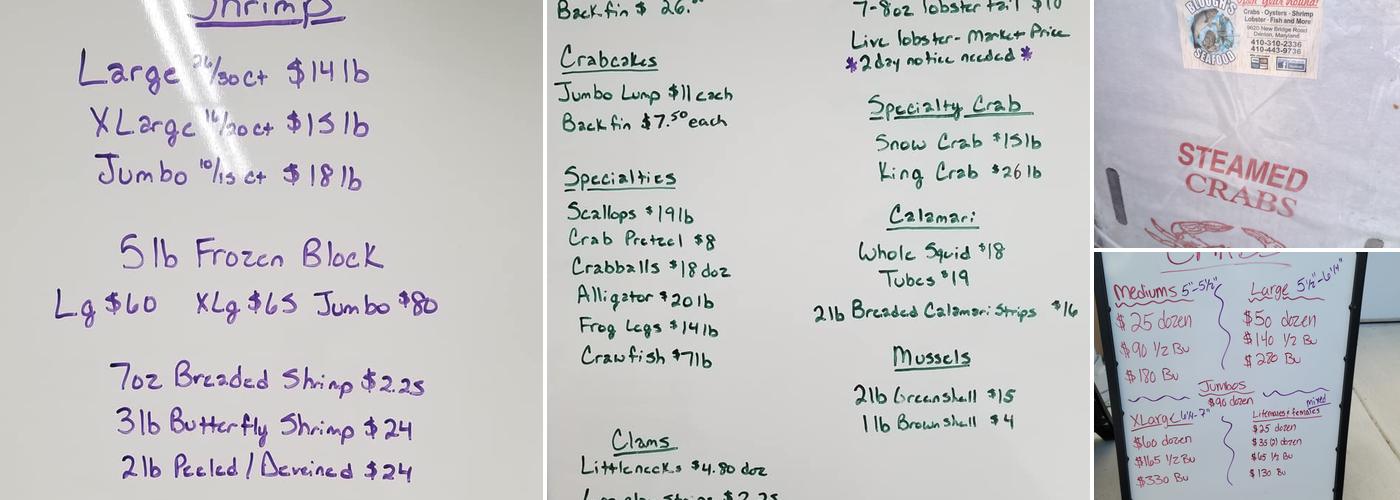 Shrimp
Large 26/30ct $14 lb
XLarge 16/20ct $15 lb
Jumbo 10/15 ct $18 lb
5 lb Frozen Block
Lg $60 XLg $65 Jumbo $80
7oz Breaded Shrimp $2.25
3lb Butterfly Shrimp $24
2lb Peeled/Deveined $24
Backfin $ 26.00
Crabcakes
Jumbo Lump $11 each
Backfin $7.50 each
Specialties
Scallops $19lb
Crab Pretzel $8
Crabballs $18 doz
Alligator $20lb
Frog Legs $14lb
Crawfish $7lb
Clams
Littlenecks $4.80 doz
7-8oz lobster tail $10
Live lobster - Market Price
*2day notice needed*
Specialty Crab
Snow Crab $15lb
King Crab $26 lb
Calamari
Whole Squid $18
Tubes $19
2lb Breaded Calamari Strips $16
Mussels
2lb Greenshell $15
1lb Brownshell $4
BLOUGH'S
SEAFOOD
Open Year Round!
Crabs · Oysters · Shrimp
Lobster · Fish and More
9620 New Bridge Road
Denton, Maryland
410-310-2336
410-443-9736
STEAMED
CRABS
Mediums 5"-5½"
$25 dozen
$90 1/2 Bu
$180 Bu
Large 5½"-6¼"
$50 dozen
$140 1/2 Bu
$220 Bu
Jumbos
$90 dozen
XLarge 6¼-7"
$60 dozen
$165 1/2 Bu
$330 Bu
mixed
Lt males & females
$25 dozen
$35 (2) dozen
$65 1/2 Bu
$130 Bu